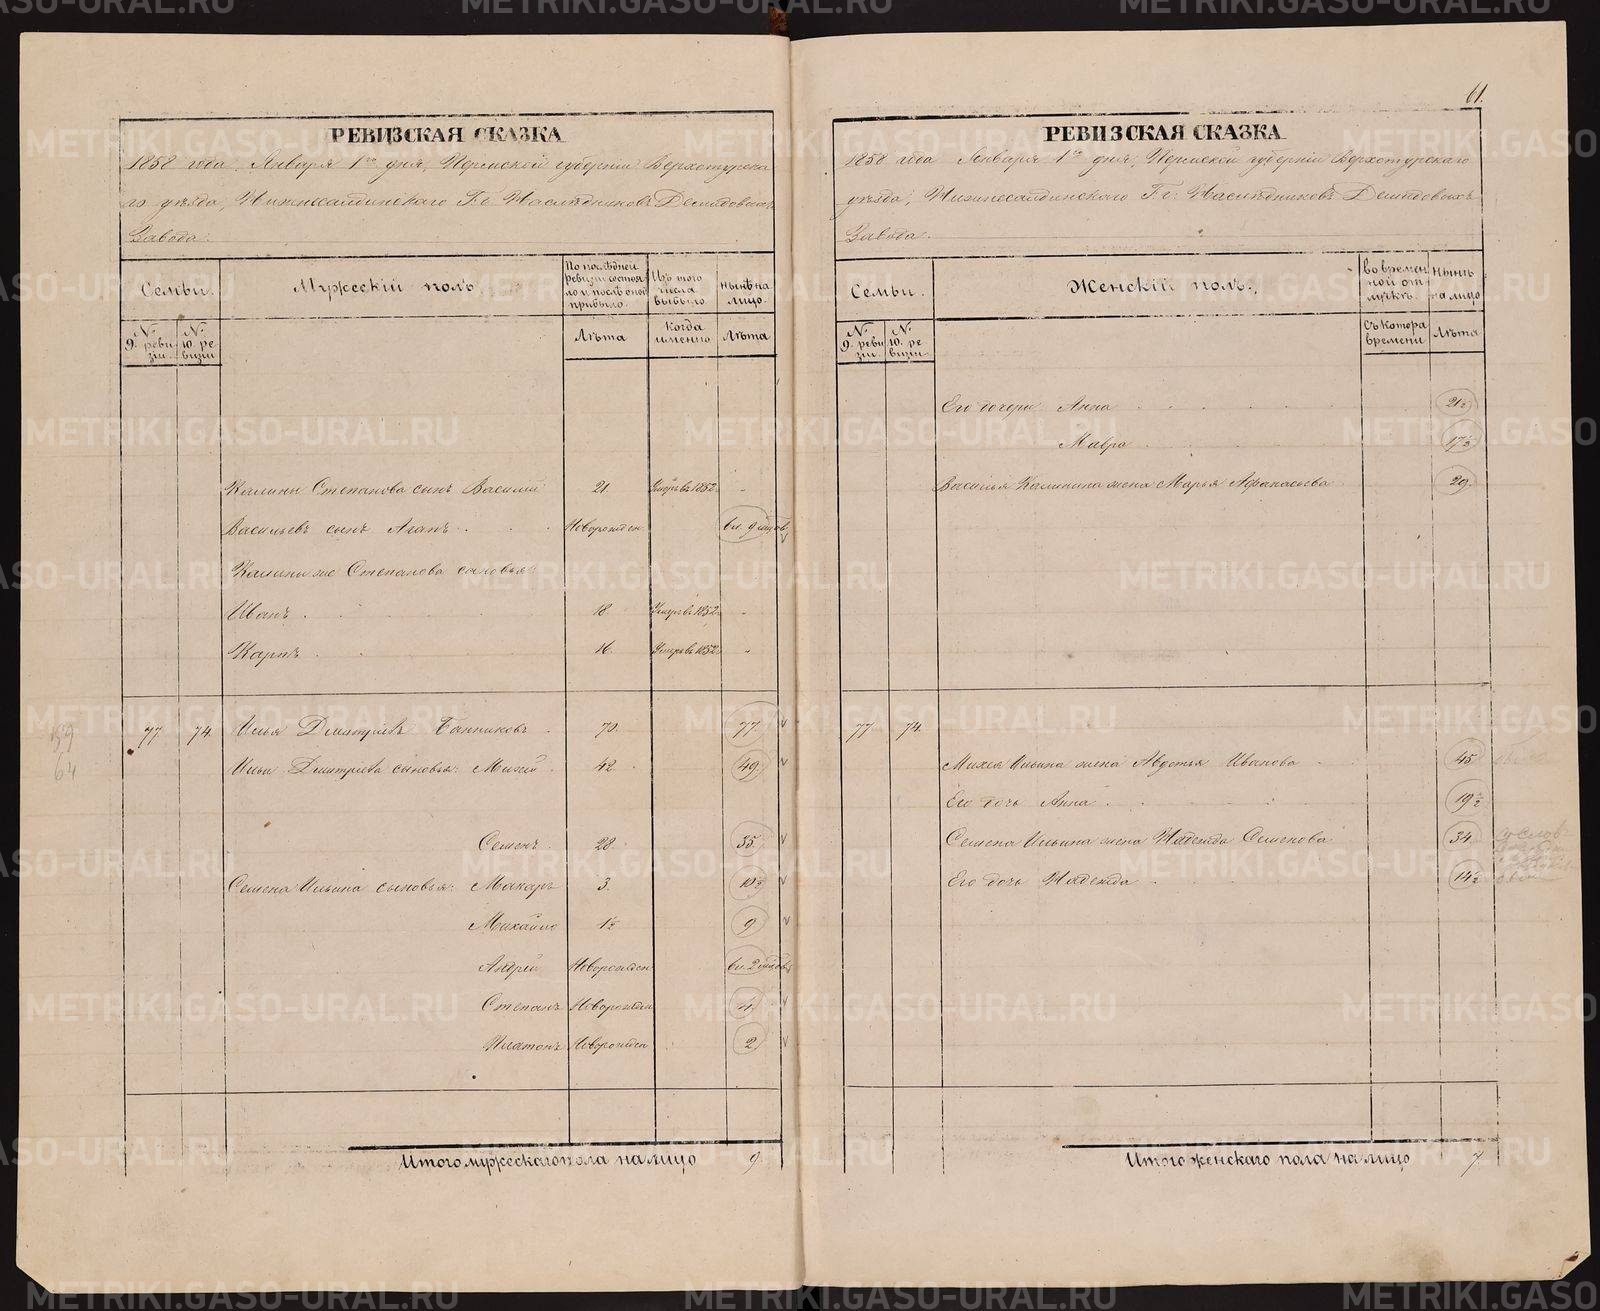 61.
РЕВИЗСКАЯ СКАЗКА
1858 года, Января 1го дня, Пермской губернiи Верхотурска
го уѣзда, Нижнесалдинскаго Гг. Наслѣдниковъ Демидовыхъ
Завода.
Семьи.
Мужескiй полъ
По послѣдней ревизiи состояло и послѣ оной прибыло.
Изъ того числа выбыло
Нынѣ на лицо.
№ 9. ревизiи.
№ 10 ревизiи
Лѣта
Когда именно
Лѣта
Калины Степанова сынъ Василiй 21. Умеръ въ 1852
Васильевъ сынъ Новорожден
Калины же Степанова сыновья:
Иванъ 18. Умеръ въ 1852
Карпъ 16. Умеръ въ 1852
77 74. Илья Дмитрiевъ Банниковъ 70. 77.
Ильи Дмитрiева сыновья: Михей 42. 49.
59
64
Семенъ 28. 35.
Семена Ильина сыновья: Макаръ 3. 10½
Михайло 1½ 9
Андрей Новорожден
Степанъ Новорожден 4
Платонъ Новорожден 2
Итого мужескаго пола на лицо 9
РЕВИЗСКАЯ СКАЗКА
1858 года Января 1го дня, Пермской губернiи Верхотурскаго
уѣзда, Нижнесалдинскаго Гг. Наслѣдниковъ Демидовыхъ
Завода.
Семьи.
Женскiй полъ.
Во временной отлучкѣ.
Нынѣ на лицо
№ 9. ревизiи.
№ 10. ревизiи.
Съ котора времени
Лѣта
Его дочери Анна 21½
Мавра 17½
Василья Калинина жена Марья Афанасьева 29.
77 74.
Михея Ильина жена Авдотья Иванова 45
Его дочь Анна 19½
Семена Ильина жена Надежда Семенова 34
Его дочь Надежда 14½
Итого женскаго пола на лицо 7
METRIKI.GASO-URAL.RU